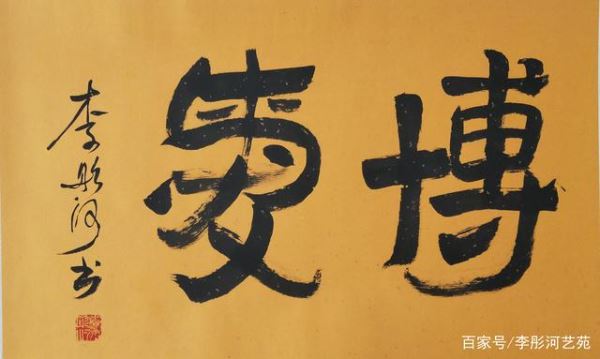 博爱
李彤河书
百家号/李彤河艺苑